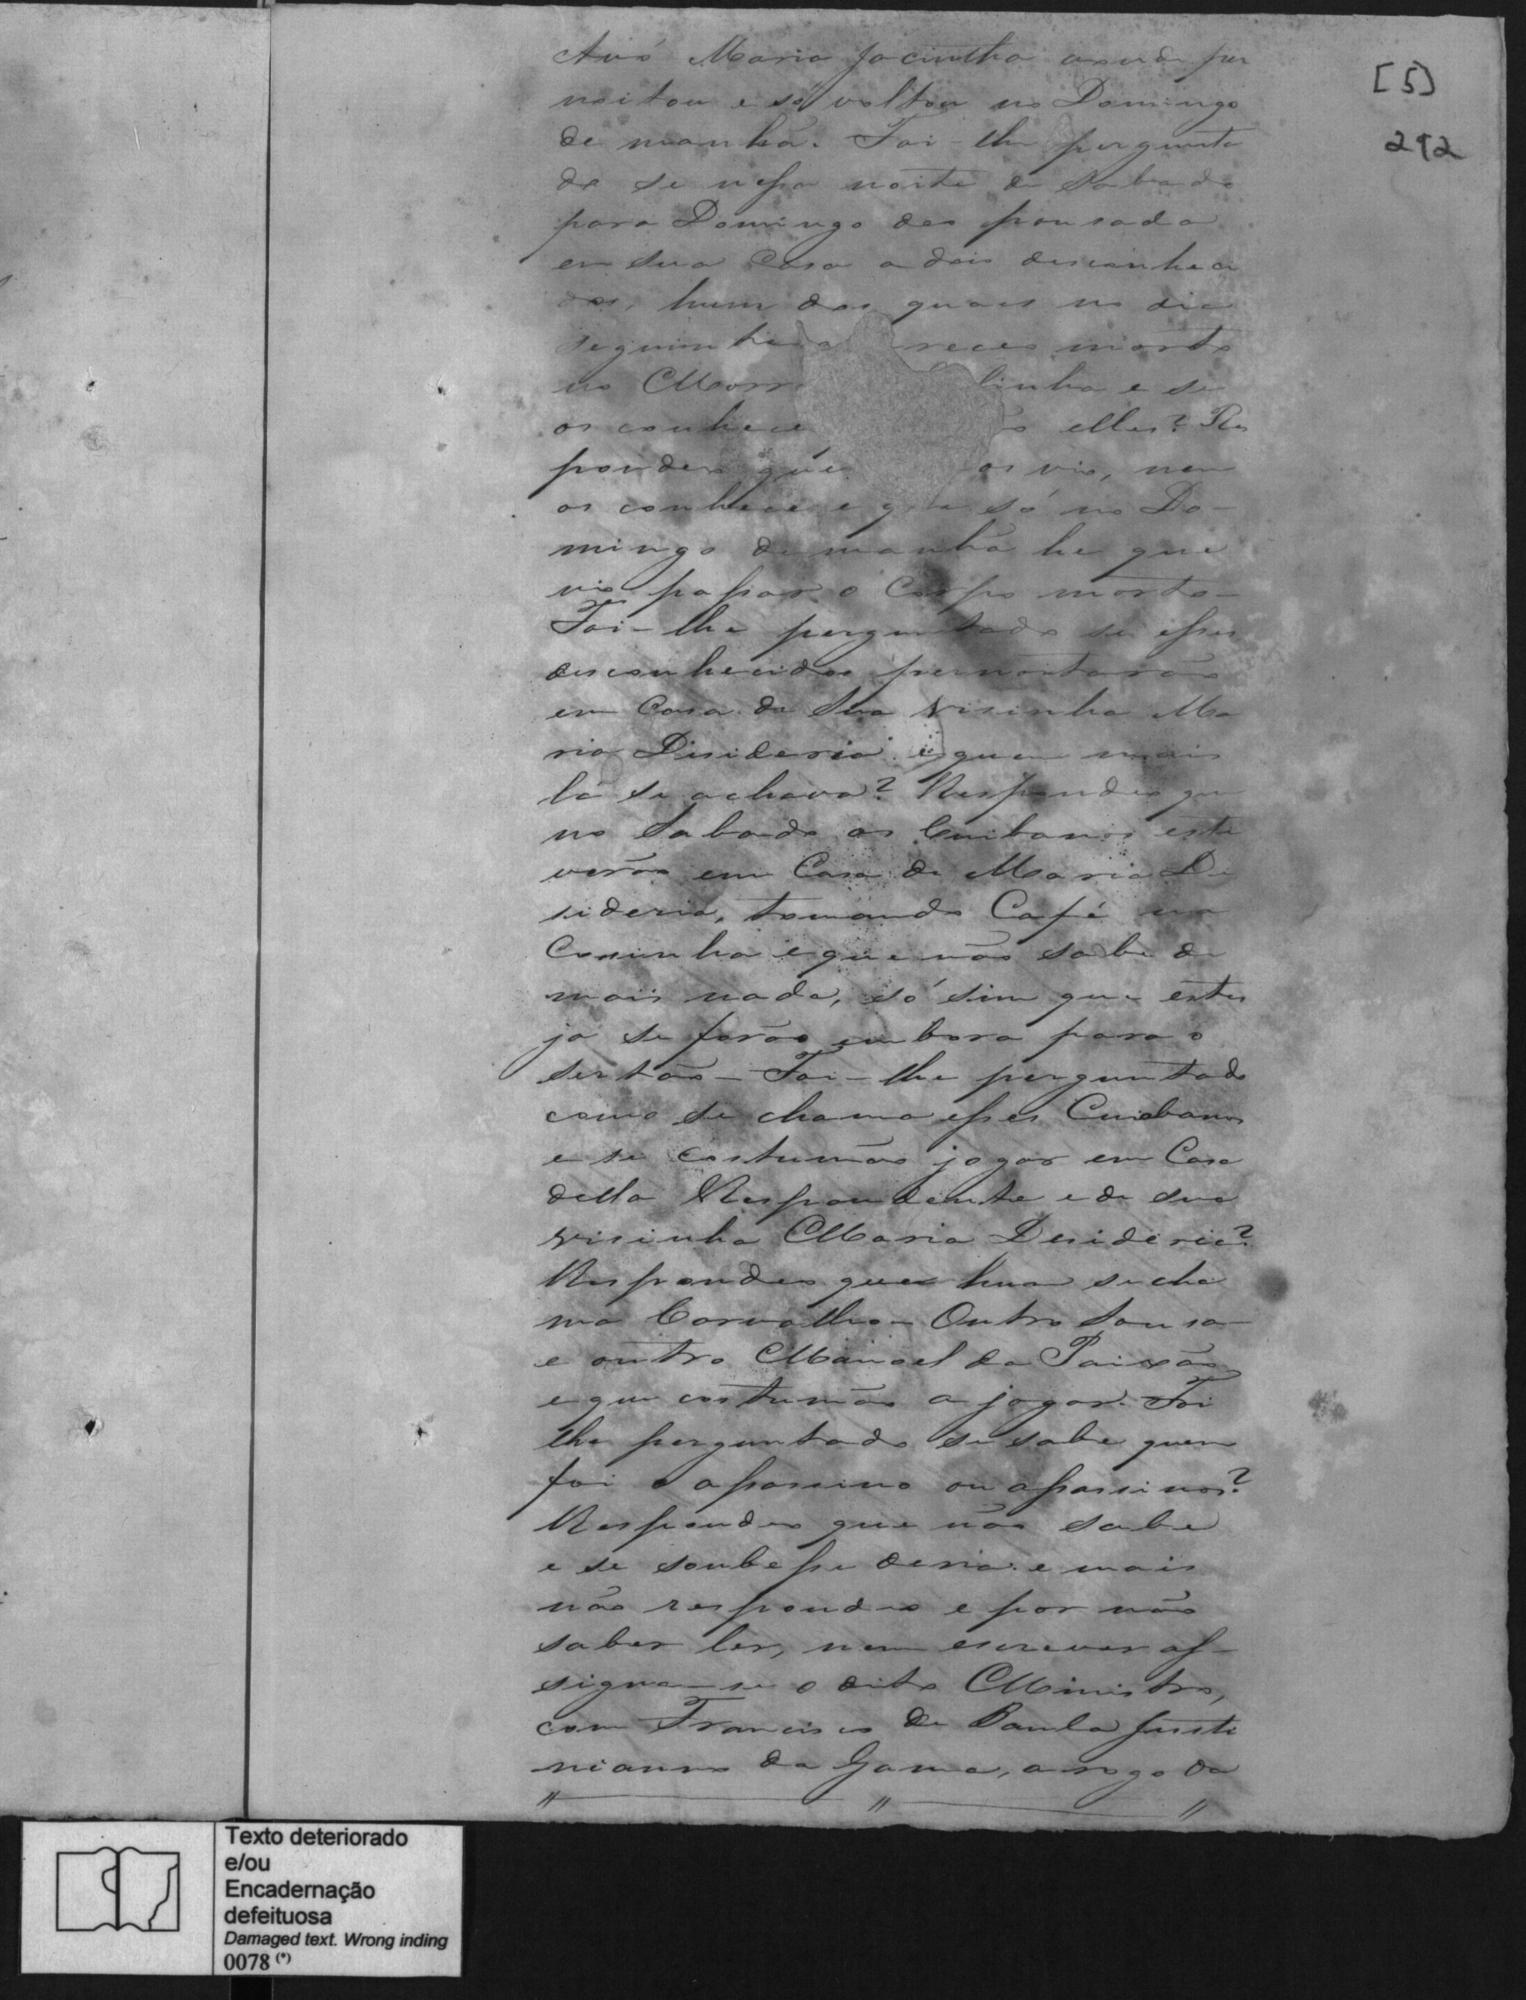 [5]
292
Avó Maria Jacintha aonde per
noitou e só voltou no Domingo
de manhã. Foi-lhe pergunta
do se nessa noite de Sabado
para Domingo deo pousada
em sua Casa a dois desconheci
dos, hum dos quaes no dia
seguinte receo morto
no Morr linha e se
os conhece elles? Res
pondeo que os vio, nem
os conhece e que só no Do-
mingo de manhã he que
vio passar o Corpo morto-
Foi-lhe perguntado se esses
desconhecidos pernoitarão
em Casa de Sua Visinha Ma
ria Disideria e quem mais
lá se achava? Respondeo que
no Sabado os Cuibanos esti
verão em Casa de Maria De
sideria, tomando Café na
Cosinha e que não sabe de
mais nada, só sim que estes
ja se forão embora para o
sertão - Foi-lhe perguntado
como se chama esses Cuiabanos
e se costumão jogar em Casa
della Respondente e de sua
Visinha Maria Desideria?
Respondeo que hum se cha
ma Carvalho - Outro Sousa -
e outro Manoel da Paixão
e que costumão a jogar. Foi
lhe perguntado se sabe quem
foi o assassino ou assassinos?
Respondeo que não sabe
e se soubesse deria. e mais
não respondeo e por não
saber ler, nem escrever as-
signa-se o dito Ministro,
com Francisco de Paula Justi
nianno da Gama, a rogo da
" " "
Texto deteriorado
e/ou
Encadernação
defeituosa
Damaged text. Wrong inding
0078 (*)